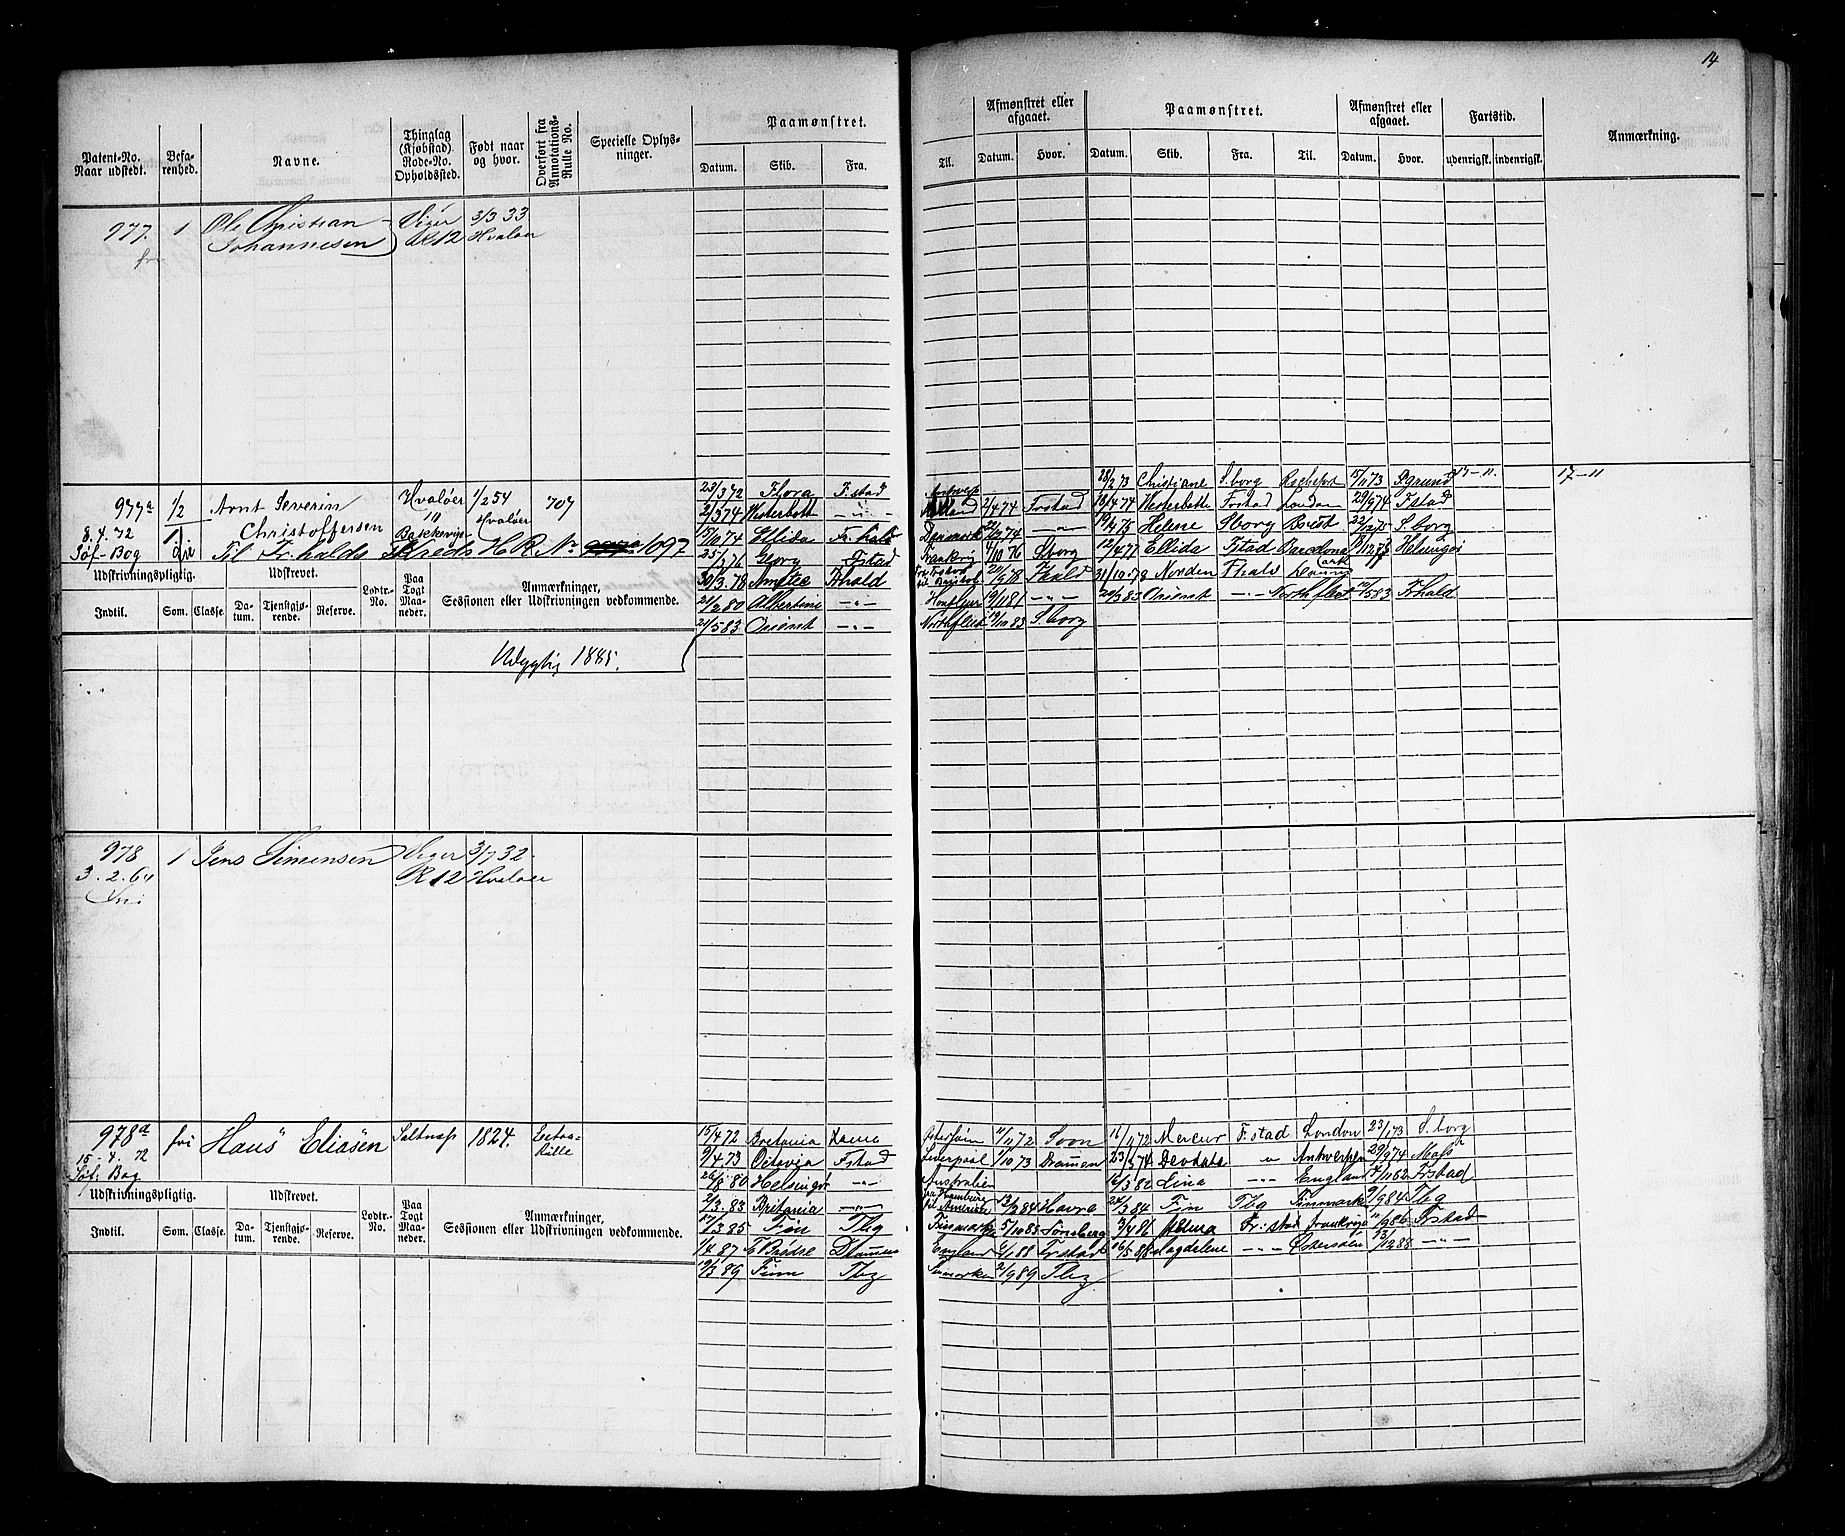 14
Patent-No. Naar udstedt. Befarenhed. Navne. Thinglag (Kjøbstad) Rode-No. Opholdssted. Født naar og hvor. Overført fra Annotations-Rulle No. Specielle Oplysninger. Paamønstret. Afmønstret eller afgaaet. Paamønstret. Afmønstret eller afgaaet. Fartstid. Anmærkning.
Datum. Skib. Fra. Til. Datum. Hvor. Datum. Skib. Fra. Til. Datum. Hvor. udenrigsk. indenrigsk.
977. 1 Ole Christian Viger 3/3 33
Johannesen R 12 Hvaløer
977a 1/2 Arnt Severin Hvaløer 1/2 54 707
8.4.72 1 Christoffersen 10 Hvaløer
Søf-Bog fri Til Fr.halds Kreds H.R. No 1097
23/3 72 Flora F.stad 28/2 73 Christiane S.borg 15/11 73 17-11. 17-11
2/3 74 -"- 2/4 74 Frstad 18/4 74 Frstad London 29/6 74 F.stad
15/10 74 Ellida Fr.hald Danmark -"- 19/4 75 Helene Sborg S.borg
Georg F.stad Frankrig 4/10 76 Sborg 12/4 77 Ellida F.stad Barcelona Helsingør
30/3 78 Amelia F.hald F.hald 31/10 78 Norden F.hald
21/2 80 Albertine -"- 19/11 81 -"- Orient -"- Northfleet F.hald
21/5 83 Orient -"- Northfleet 19/10 83 S.borg
Udskrivningspligtig. Udskrevet. Lodtr-No. Paa Togt Maaneder. Anmærkninger, Sessionen eller Udskrivningen vedkommende.
Indtil. Som. Classe. Datum. Tjenstgjørende. Reserve.
Udygtig 1885.
978 1 Jens Simensen Viger 3/7 32.
3.2.64 R 12 Hvaløer
fri
978a fri Hans Eliasen Saltnæs 1824. Extra-
15-4.72 Rulle
Søf. Bog
15/4 72 Britania Østersøen 11/11 72 Soon 16/11 72 Mercur F.stad London 23/1 73 S.borg
9/4 73 Octavia F.stad Liverpool 1/10 73 Drammen 23/3 74 Deodata " Antwerpen 29/9 74 Moss
26/8 80 Helsingør -"- Australien 16/3 82 Lina -"- England F.stad
2/3 83 Britania -"- fra Hamburg til Amerika 13/2 84 Havre 24/3 84 Fin Tbg Finmarken 9/9 84 Tbg
17/3 85 Fin Tbg Finmarken 5/10 85 Tønsberg 3/4 86 Fr.stad Frankrig 11/9 86 Frstad
1/4 87 Drammen England 6/1 88 Fr.stad 16/5 88 Magdalene -"- Østersøen 13/12 88 -"-
19/3 89 Finn Tbg Finmarken 2/9 89 Tbg
Udskrivningspligtig. Udskrevet. Lodtr-No. Paa Togt Maaneder. Anmærkninger, Sessionen eller Udskrivningen vedkommende.
Indtil. Som. Classe. Datum. Tjenstgjørende. Reserve.